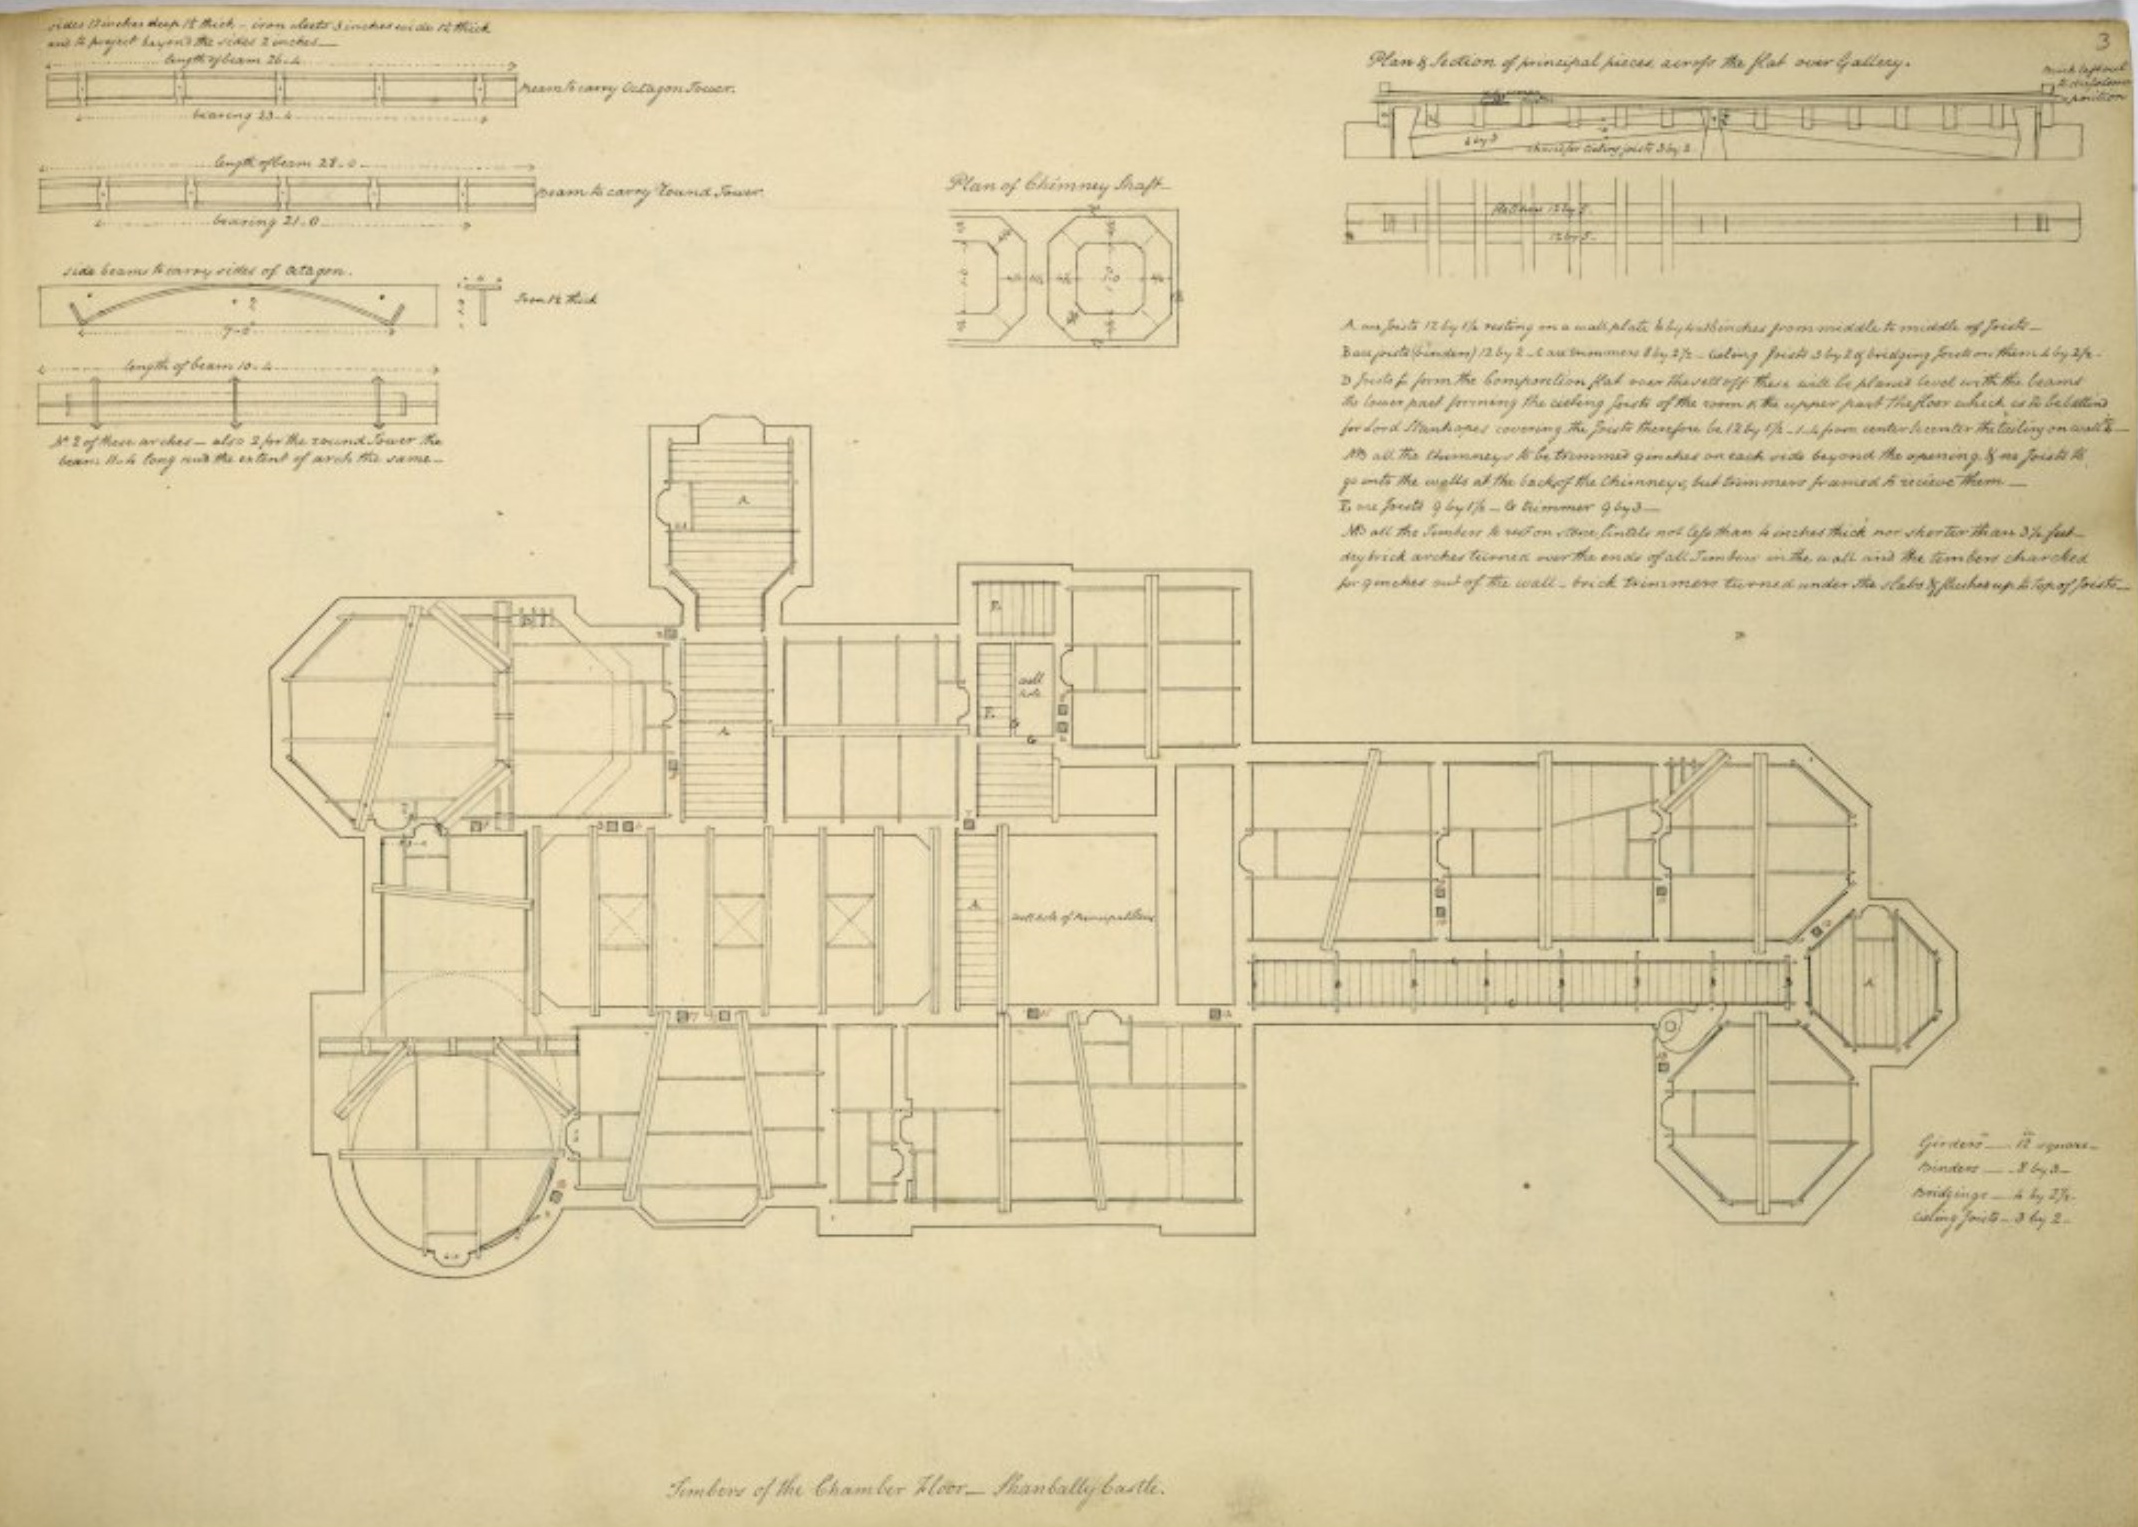 3
sides 12 inches deep 1½ thick – iron cleets 3 inches wide 1½ thick
and to project beyond the sides 2 inches
length of beam 26-4
Beam to carry Octagon Tower.
bearing 23-4
length of beam 28-0
Beam to carry Round Tower.
bearing 21-0
side beams to carry sides of Octagon.
Iron 1½ thick
length of beam 10-4
No 2 of these arches – also 2 for the round Tower the
beam 11-4 long and the extent of arch the same
Plan of Chimney Shaft
Plan & Section of principal pieces across the flat over Gallery.
position
4 by 3
ceiling joists 3 by 2
12 by 5
A are Joists 12 by 1½ resting on a wall plate inches from middle to middle of Joists
B are joists (binders) 12 by 2 – C are trimmers 8 by 2½ – Ceiling Joists 3 by 2 & bridging Joists on them 4 by 2½ –
D Joists to form the Composition flat over these will be placed level with the beams
the lower part forming the ceiling Joists of the room & the upper part the floor which is to be
for Lord Stanhopes covering the Joists therefore be 12 by 1½ – 1-4 from center to center the ceiling on
NB all the Chimneys to be trimmed 9 inches on each side beyond the opening & no Joists to
go onto the walls at the back of the Chimneys, but trimmers framed to recieve them
E are Joists 9 by 1½ – G trimmer 9 by 3
NB all the Timbers to rest on stone lintels not less than 4 inches thick nor shorter than 3½ feet
dry brick arches turned over the ends of all Timbers in the wall and the timbers charched
for 9 inches out of the wall – brick trimmers turned under the slabs & flushed up to top of Joists
A
E
well
hole
E
G
A
A
well hole of Principal Stairs
A
Girders — 12 square
Binders — 8 by 3
Bridgings — 4 by 2½
Ceiling Joists – 3 by 2
Timbers of the Chamber Floor – Shanbally Castle.